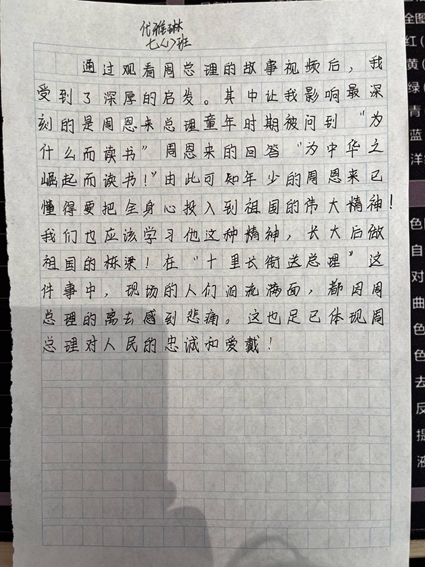 代雅琳
七(4)班
通过观看周总理的故事视频后，我
受到了深厚的启发。其中让我影响最深
刻的是周恩来总理童年时期被问到“为
什么而读书”周恩来的回答“为中华之
崛起而读书！”由此可知年少的周恩来已
懂得要把全身心投入到祖国的伟大精神！
我们也应该学习他这种精神，长大后做
祖国的栋梁！在“十里长街送总理”这
件事中，现场的人们泪流满面，都因周
总理的离去感到悲痛。这也足已体现周
总理对人民的忠诚和爱戴！
全图
红（
黄（
绿（
青
蓝
洋
色
自
对
曲
色
色
去
反
提
液